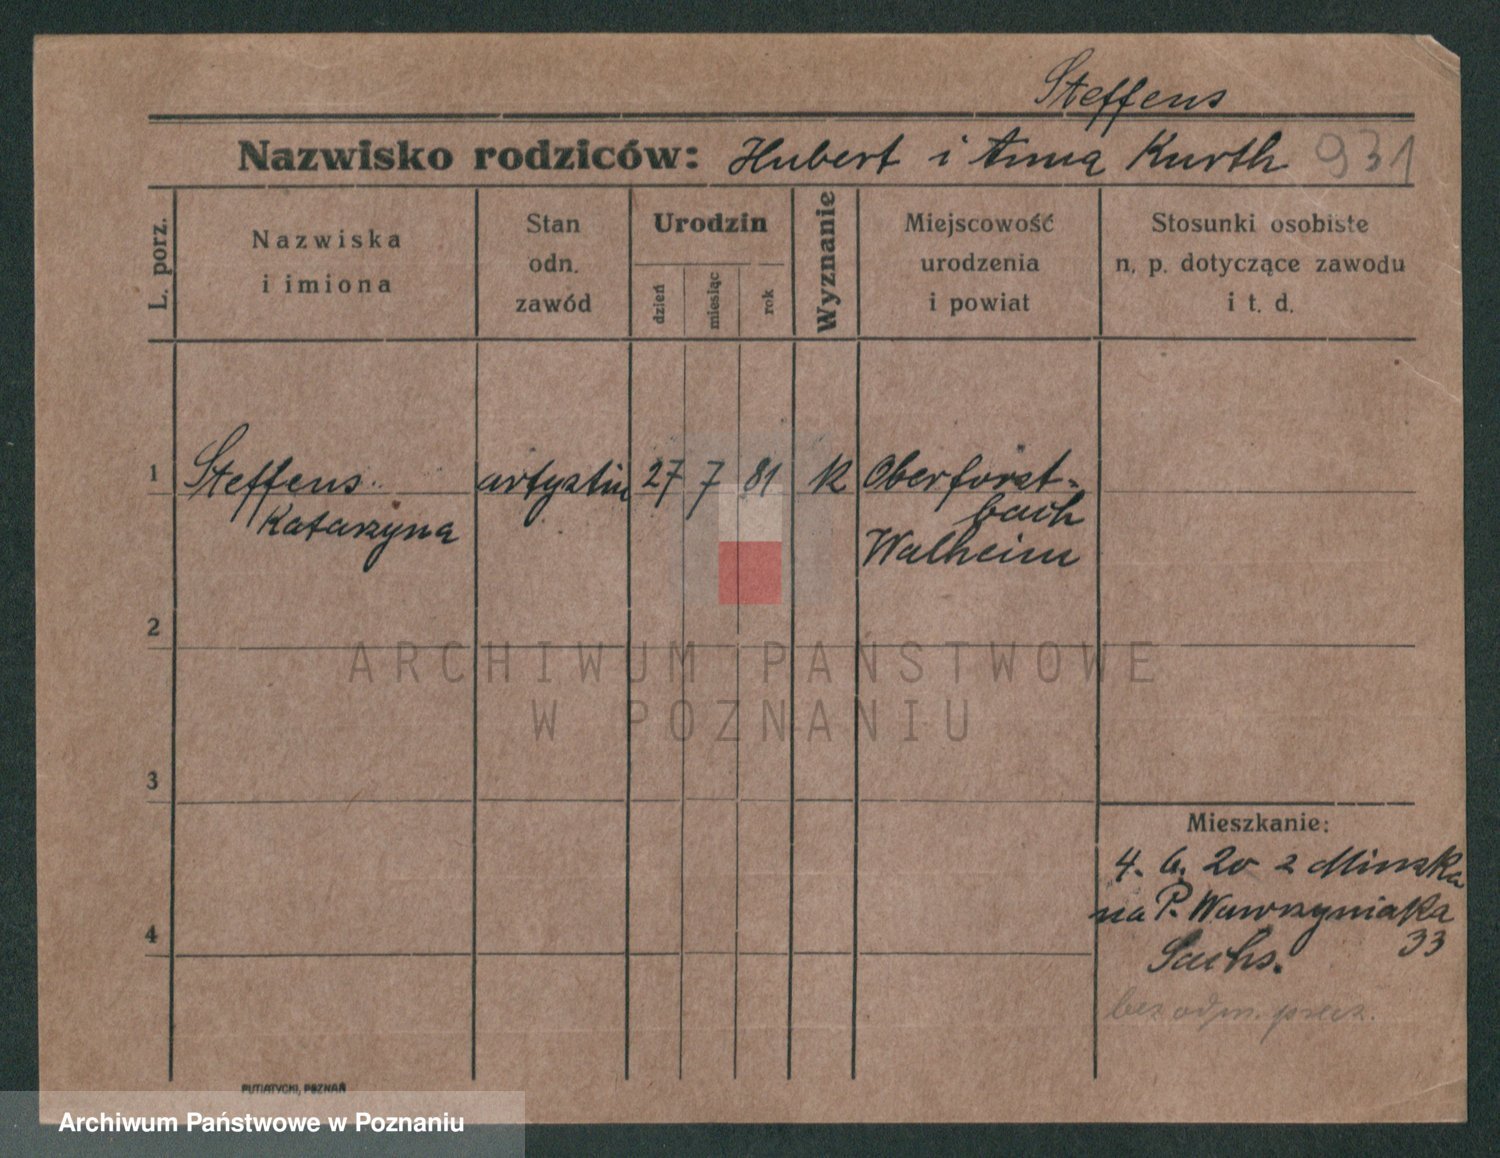 Steffens
Nazwisko rodziców: Hubert i Anna Kurth 931
L. porz.
Nazwiska
i imiona
Stan
odn.
zawód
Urodzin
dzień
miesiąc
rok
Wyznanie
Miejscowość
urodzenia
i powiat
Stosunki osobiste
n. p. dotyczące zawodu
i t. d.
1 Steffens artystin 27 7 81 K Oberforst-
Katarzyna bach
Walheim
2
ARCHIWUM PAŃSTWOWE
W POZNANIU
3
Mieszkanie:
4. 6. 20 z Minska
na P. Wawrzyniaka
4 33
Sachs.
PUTIATYCKI, POZNAŃ
Archiwum Państwowe w Poznaniu